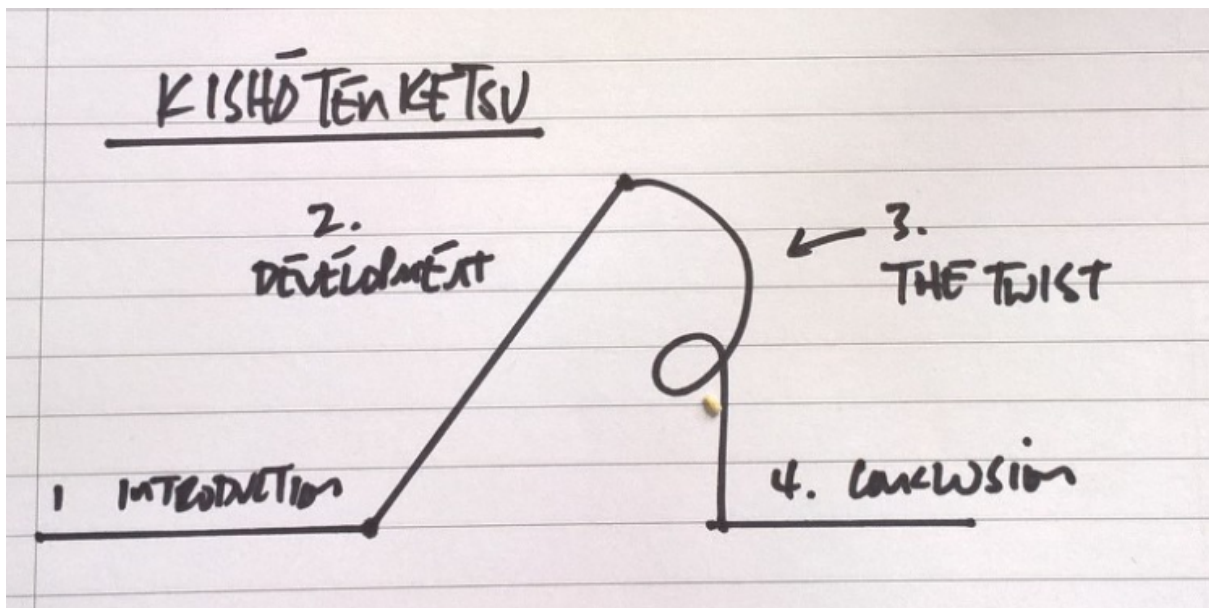 KISHŌTENKETSU
2.
DEVELOPMENT
3.
THE TWIST
1 INTRODUCTION
4. CONCLUSION